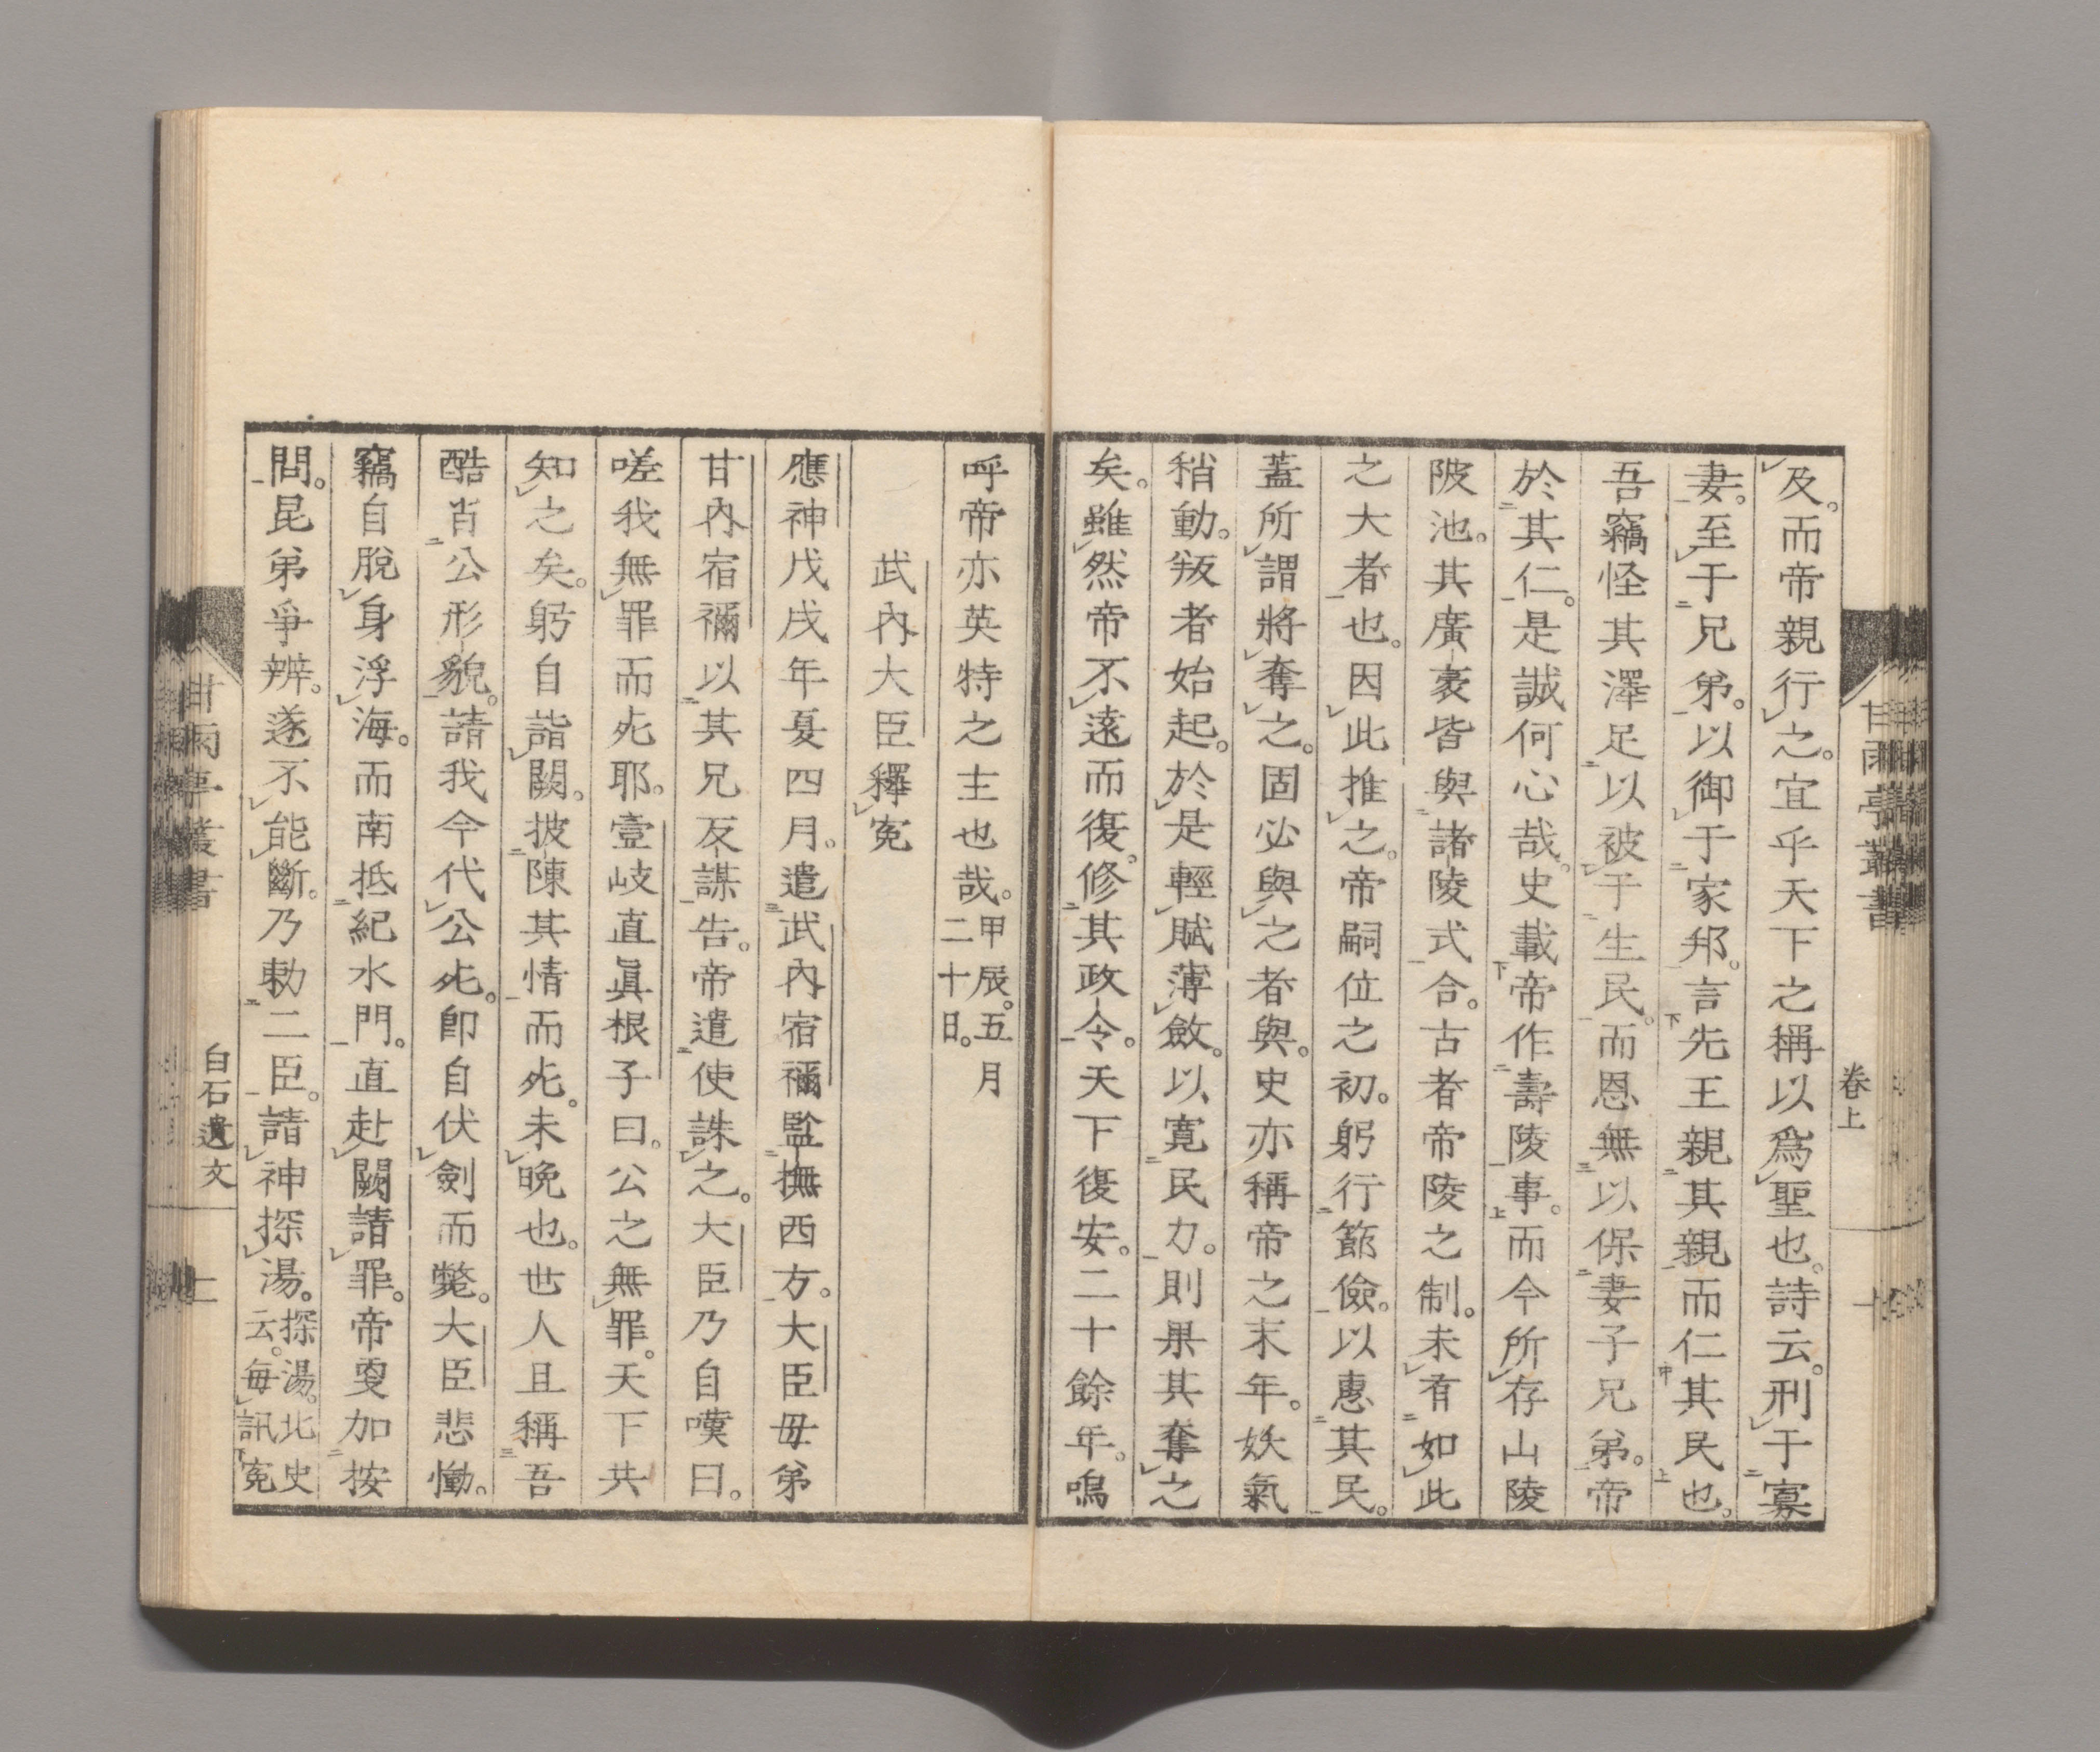 及。而帝親行之。宜乎天下之稱以爲聖也。詩云。刑于寡
妻。至于兄弟。以御于家邦。言先王親其親而仁其民也。
吾竊怪其澤足以被于生民。而恩無以保妻子兄弟。帝
於其仁。是誠何心哉。史載帝作壽陵事。而今所存山陵
陂池。其廣袤皆與諸陵式合。古者帝陵之制。未有如此
之大者也。因此推之。帝嗣位之初。躬行節儉。以惠其民。
蓋所謂將奪之。固必與之者與。史亦稱帝之末年。妖氣
稍動。叛者始起。於是輕賦薄斂。以寬民力。則果其奪之
矣。雖然帝不遠而復。修其政令。天下復安。二十餘年。鳴
甘雨亭叢書
卷上
十
呼帝亦英特之主也哉。甲辰。五月
二十日。
武內大臣釋寃
應神戊戌年夏四月。遣武內宿禰監撫西方。大臣毋弟
甘內宿禰以其兄反謀告。帝遣使誅之。大臣乃自嘆曰。
嗟我無罪而死耶。壹岐直眞根子曰。公之無罪。天下共
知之矣。躬自詣闕。披陳其情而死。未晚也。世人且稱吾
酷肖公形貌。請我今代公死。卽自伏劍而斃。大臣悲慟。
竊自脫身浮海。而南抵紀水門。直赴闕請罪。帝更加按
問。昆弟爭辨。遂不能斷。乃勅二臣。請神探湯。探湯。北史
云。每訊寃
甘雨亭叢書
白石遺文